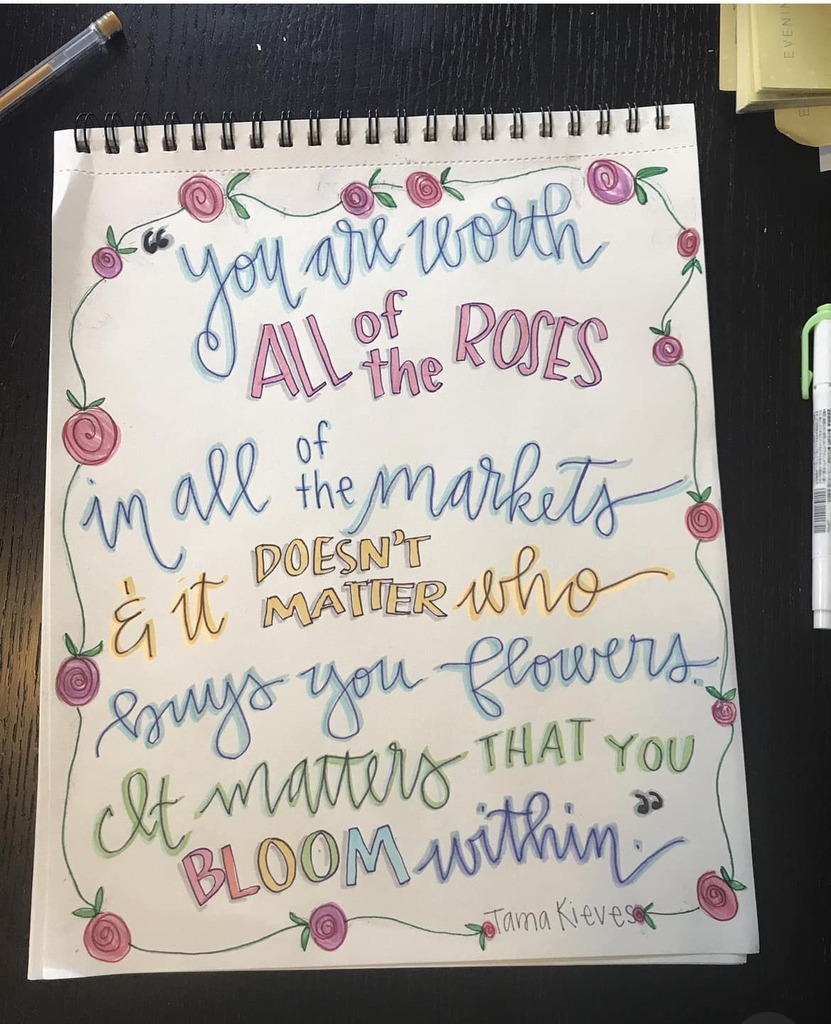 EVENIN
“you are worth
ALL of the ROSES
in all of the markets
& it DOESN'T MATTER who
buys you flowers.
It matters THAT YOU
BLOOM within.”
Tama Kieves